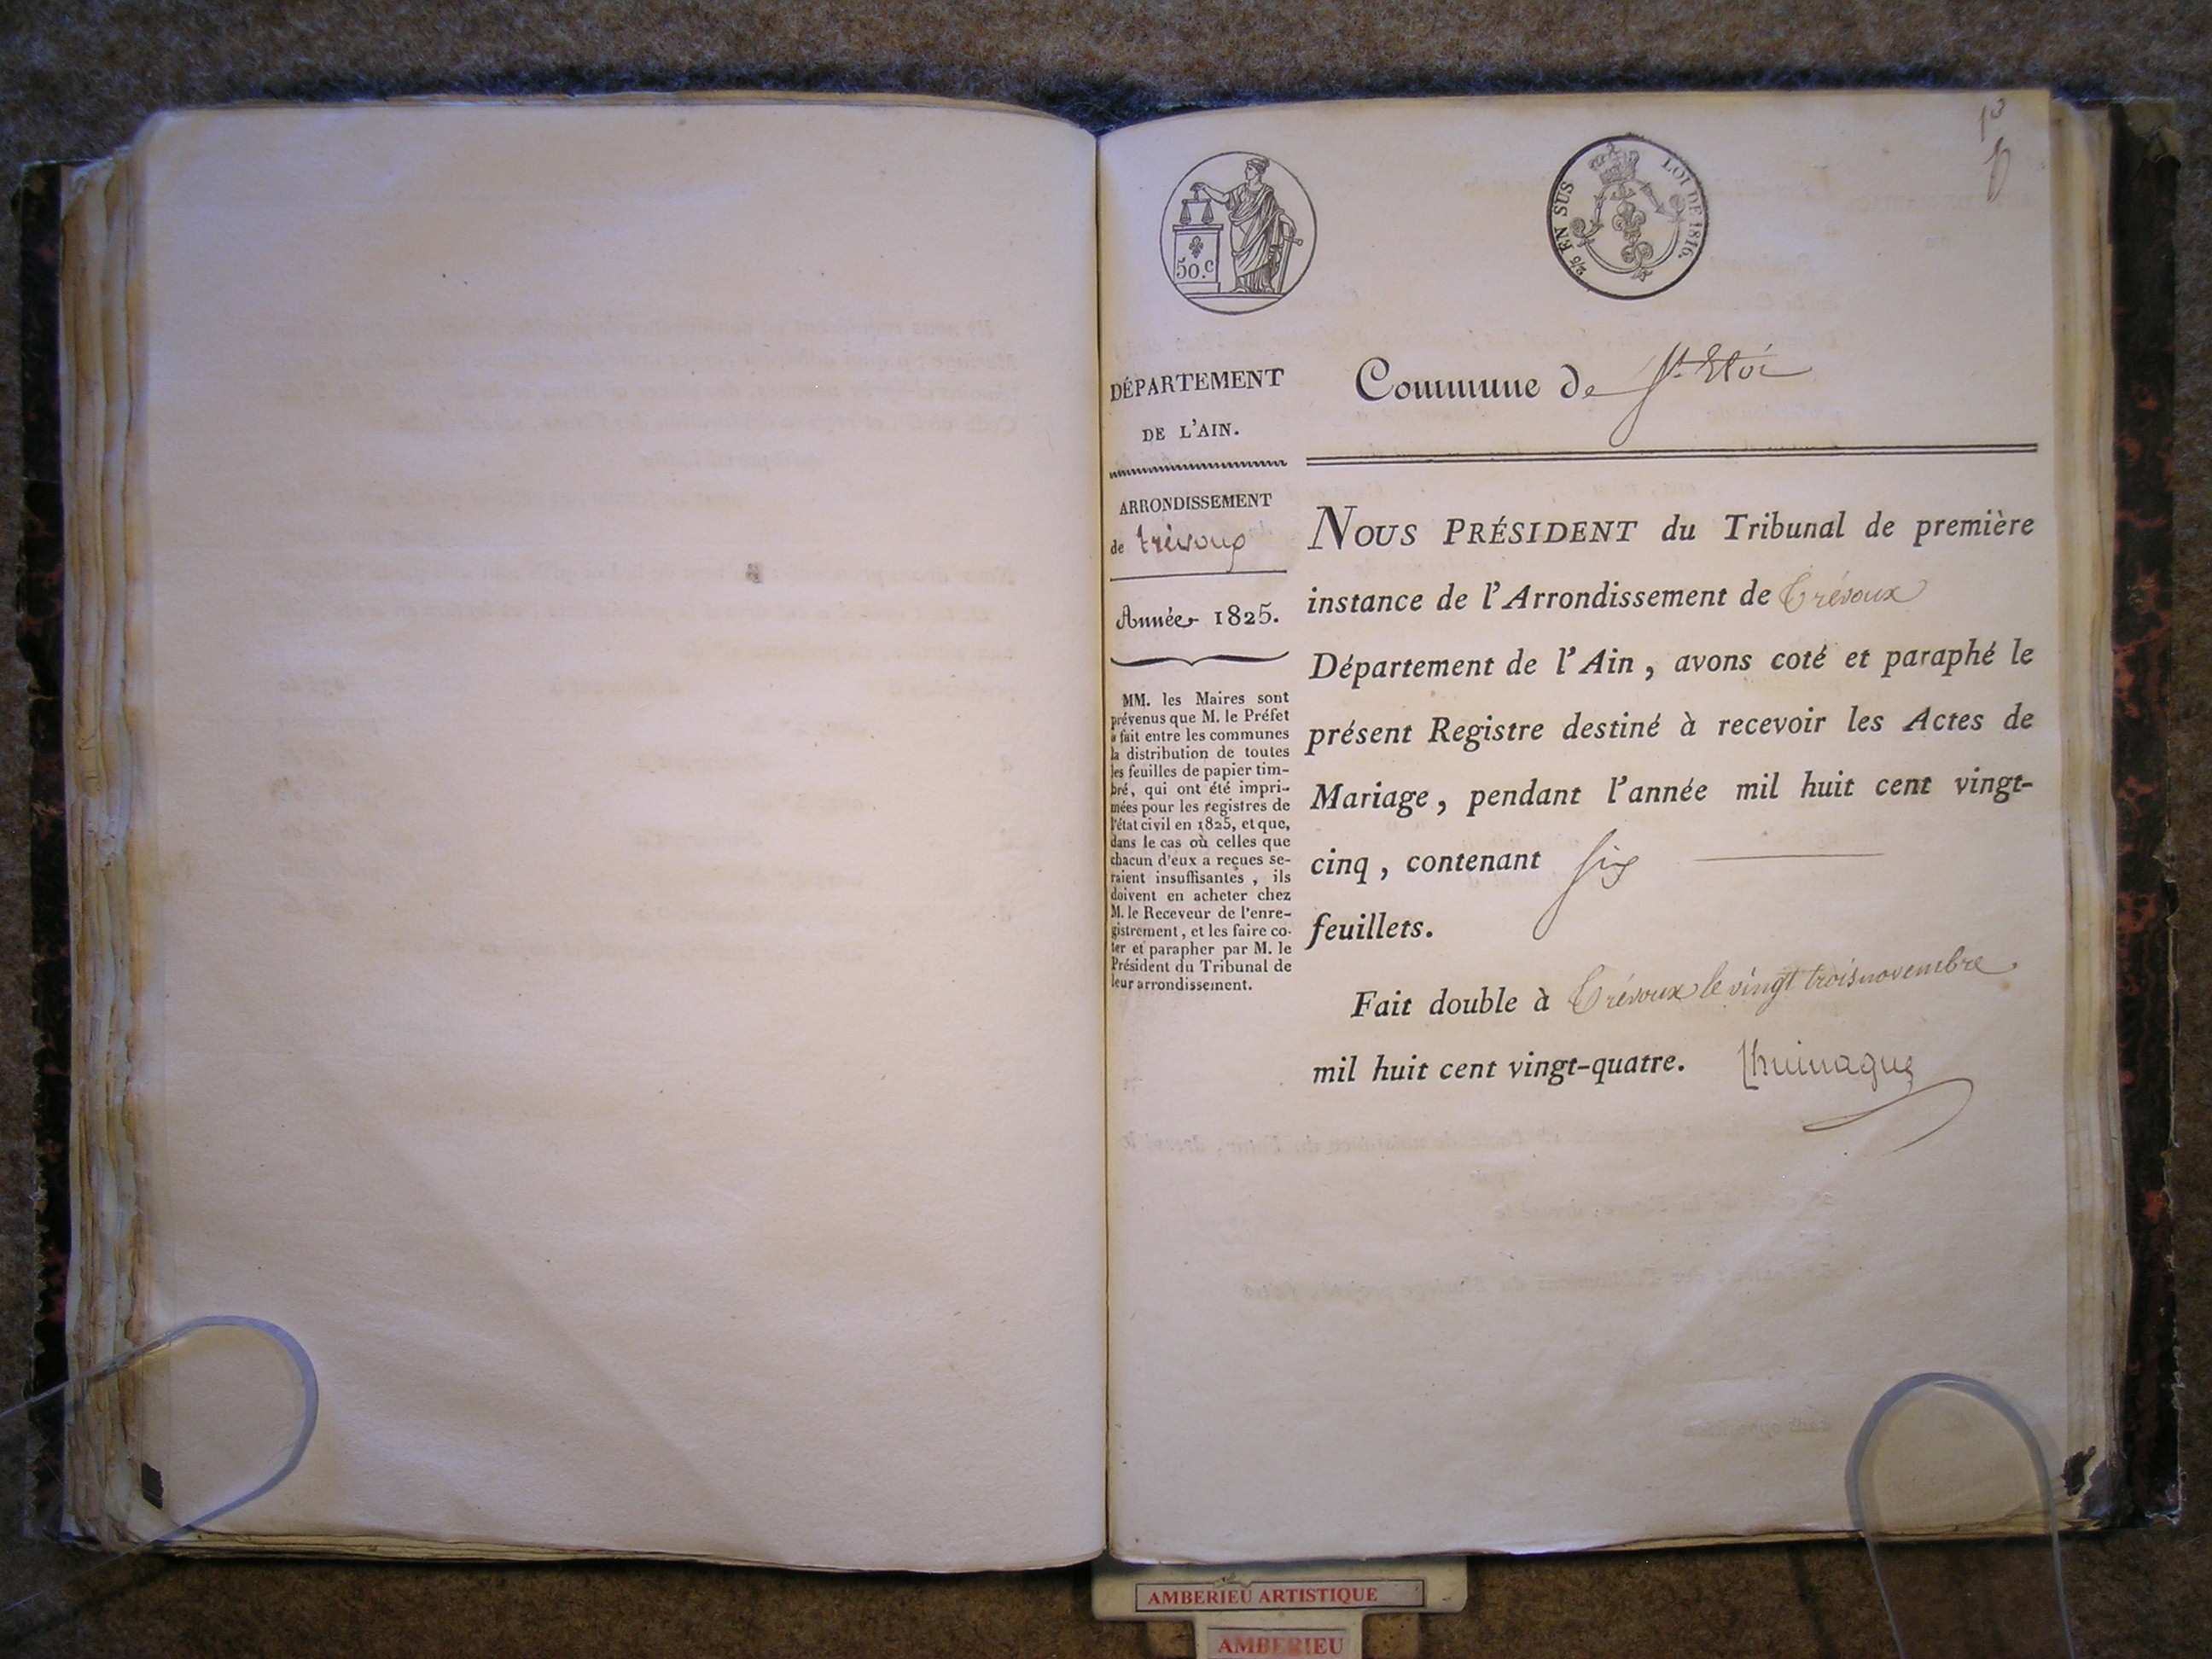 1er
50.c
2/5 EN SUS LOI DE 1816.
DÉPARTEMENT
DE L'AIN.
ARRONDISSEMENT
de trévoux
Année 1825.
MM. les Maires sont
prévenus que M. le Préfet
a fait entre les communes
la distribution de toutes
les feuilles de papier tim-
bré, qui ont été impri-
mées pour les registres de
l'état civil en 1825, et que,
dans le cas où celles que
chacun d'eux a reçues se-
raient insuffisantes, ils
doivent en acheter chez
M. le Receveur de l'enre-
gistrement, et les faire co-
ter et parapher par M. le
Président du Tribunal de
leur arrondissement.
Commune de St Eloi
NOUS PRÉSIDENT du Tribunal de première
instance de l'Arrondissement de Trévoux
Département de l'Ain, avons coté et paraphé le
présent Registre destiné à recevoir les Actes de
Mariage, pendant l'année mil huit cent vingt-
cinq, contenant six
feuillets.
Fait double à Trévoux le vingt trois novembre
mil huit cent vingt-quatre.
AMBERIEU ARTISTIQUE
AMBERIEU